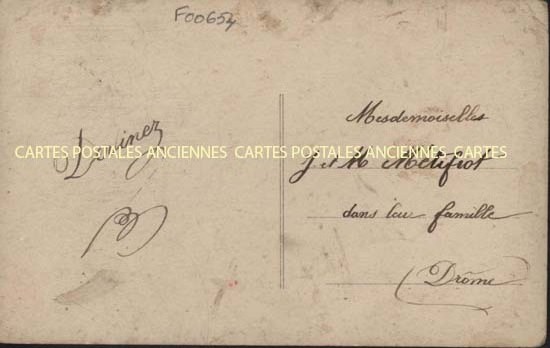 F00654
Devinez
CARTES POSTALES ANCIENNES CARTES POSTALES ANCIENNES CARTES
Mesdemoiselles
J et M Métifiot
dans leur famille
Drôme